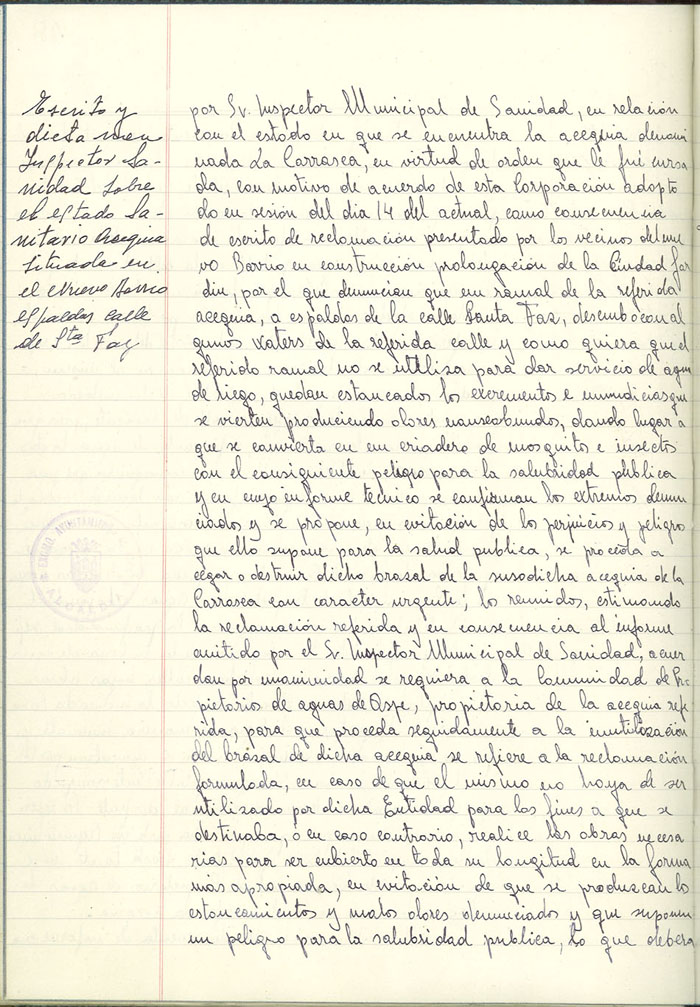 Escrito y
dictamen
Inspector Sa-
nidad sobre
el estado Sa-
nitario Acequia
situada en
el Nuevo Barrio
espaldas calle
de Sta Faz
por Sr. Inspector Municipal de Sanidad, en relación
con el estado en que se encuentra la acequia denomi
nada La Carrasca, en virtud de orden que le fué cursa
da, con motivo de acuerdo de esta Corporación adopta
do en sesión del dia 14 del actual, como consecuencia
de escrito de reclamación presentado por los vecinos del nue
vo Barrio en construcción prolongación de la Ciudad Jar
din, por el que denuncian que un ramal de la referida
acequia, a espaldas de la calle Santa Faz, desembocan al
gunos waters de la referida calle y como quiera que el
referido ramal no se utiliza para dar servicio de agua
de riego, quedan estancados los excrementos e inmundicias que
se vierten produciendo olores nauseabundos, dando lugar a
que se convierta en un criadero de mosquitos e insectos
con el consiguiente peligro para la salubridad pública
y en cuyo informe técnico se confirman los extremos denun
ciados y se propone, en evitación de los perjuicios y peligros
que ello supone para la salud publica, se proceda a
cegar o destruir dicho brazal de la susodicha acequia de la
Carrasca con caracter urgente; los reunidos, estimando
la reclamación referida y en consecuencia al informe
emitido por el Sr. Inspector Municipal de Sanidad, acuer
dan por unanimidad se requiera a la Comunidad de Pro
pietarios de aguas de Aspe, propietaria de la acequia refe
rida, para que proceda seguidamente a la inutilización
del brazal de dicha acequia se refiere a la reclamación
formulada, en caso de que el mismo no haya de ser
utilizado por dicha Entidad para los fines a que se
destinaba, o en caso contrario, realice las obras necesa
rias para ser cubierto en toda su longitud en la forma
más apropiada, en evitación de que se produzcan los
estancamientos y malos olores denunciados y que suponen
un peligro para la salubridad publica, lo que deberá